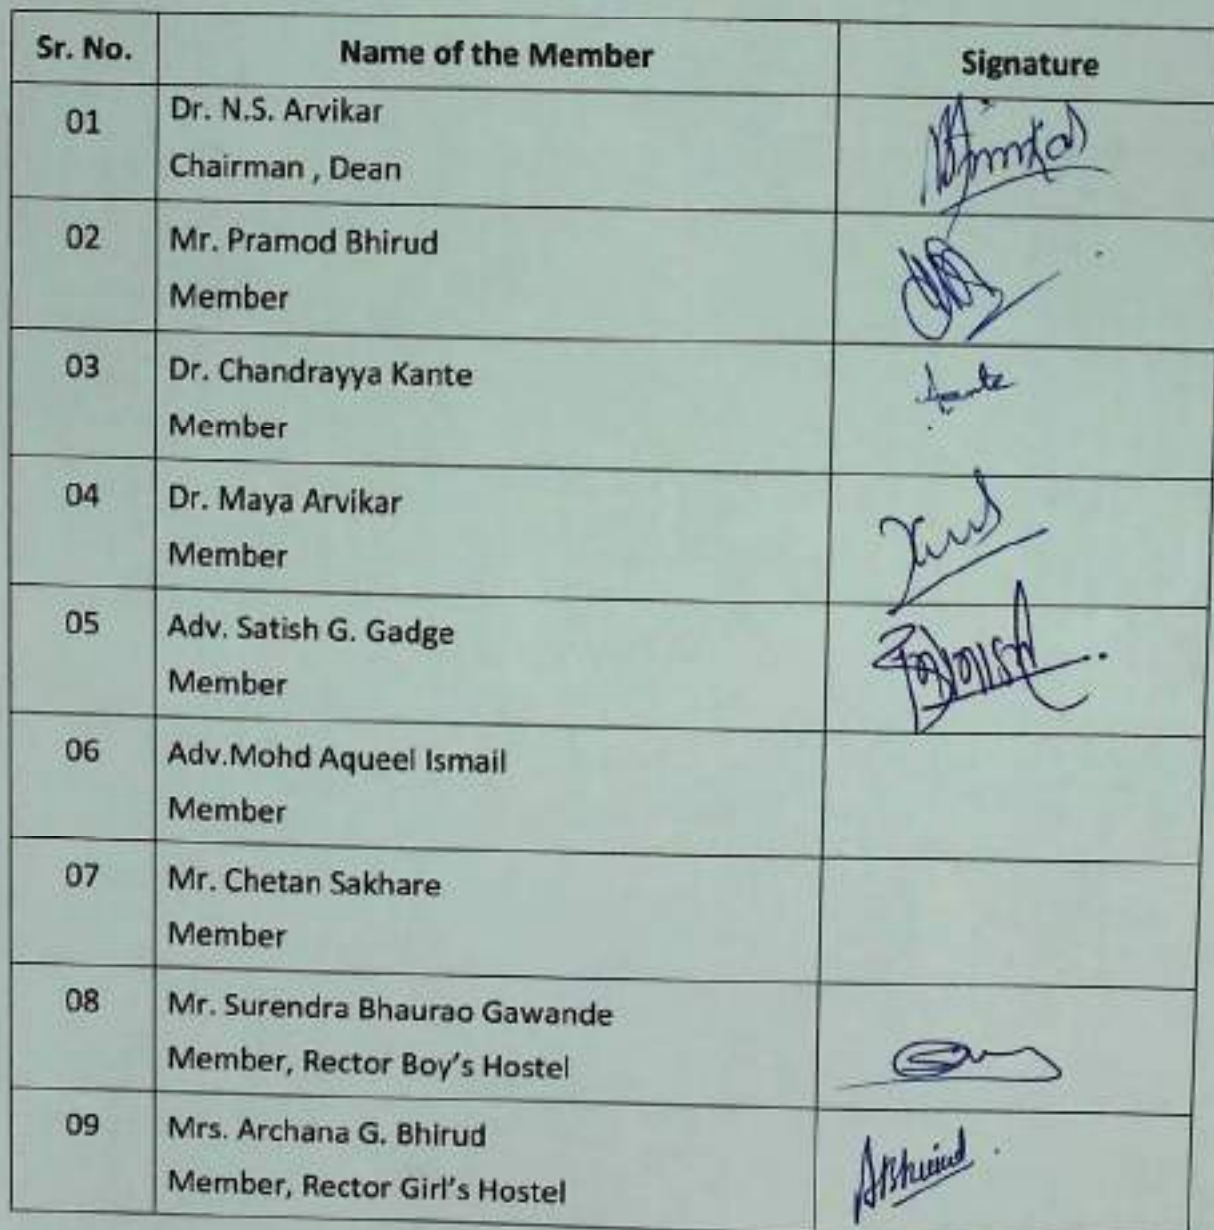 Sr. No. Name of the Member Signature
01 Dr. N.S. Arvikar
Chairman , Dean
02 Mr. Pramod Bhirud
Member
03 Dr. Chandrayya Kante
Member
Kante
04 Dr. Maya Arvikar
Member
05 Adv. Satish G. Gadge
Member
06 Adv.Mohd Aqueel Ismail
Member
07 Mr. Chetan Sakhare
Member
08 Mr. Surendra Bhaurao Gawande
Member, Rector Boy's Hostel
09 Mrs. Archana G. Bhirud
Member, Rector Girl's Hostel
ABhirud